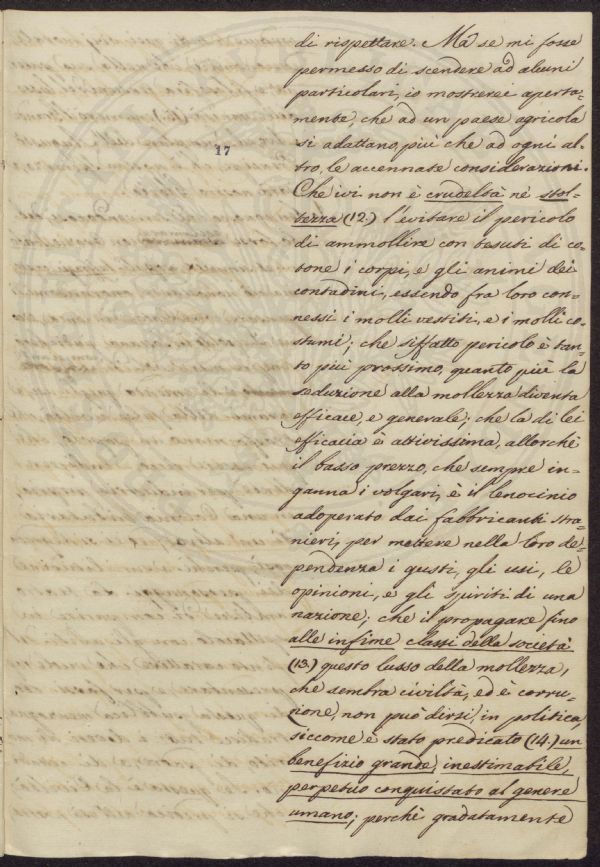 17
di rispettare. Ma se mi fosse
permesso di scendere ad alcuni
particolari, io mostrerei aperta-
mente, che ad un paese agricola
si adattano, più che ad ogni al-
tro, le accennate considerazioni.
Che ivi non è crudeltà nè stol-
tezza (12.) l'evitare il pericolo
di ammollire con tessuti di co-
tone i corpi, e gli animi dei
contadini, essendo fra loro con-
nessi i molli vestiti, e i molli co-
stumi; che siffatto pericolo è tan-
to più prossimo, quanto più la
seduzione alla mollezza diventa
efficace, e generale; che la di lei
efficacia è attivissima, allorchè
il basso prezzo, che sempre in-
ganna i volgari, è il lenocinio
adoperato dai fabbricanti stra-
nieri, per mettere nella loro di-
pendenza i gusti, gli usi, le
opinioni, e gli spiriti di una
nazione; che il propagare fino
alle infime classi della società
(13.) questo lusso della mollezza,
che sembra civiltà, ed è corru-
zione, non può dirsi, in politica,
siccome è stato predicato (14.) un
benefizio grande, inestimabile,
perpetuo conquistato al genere
umano; perchè gradatamente